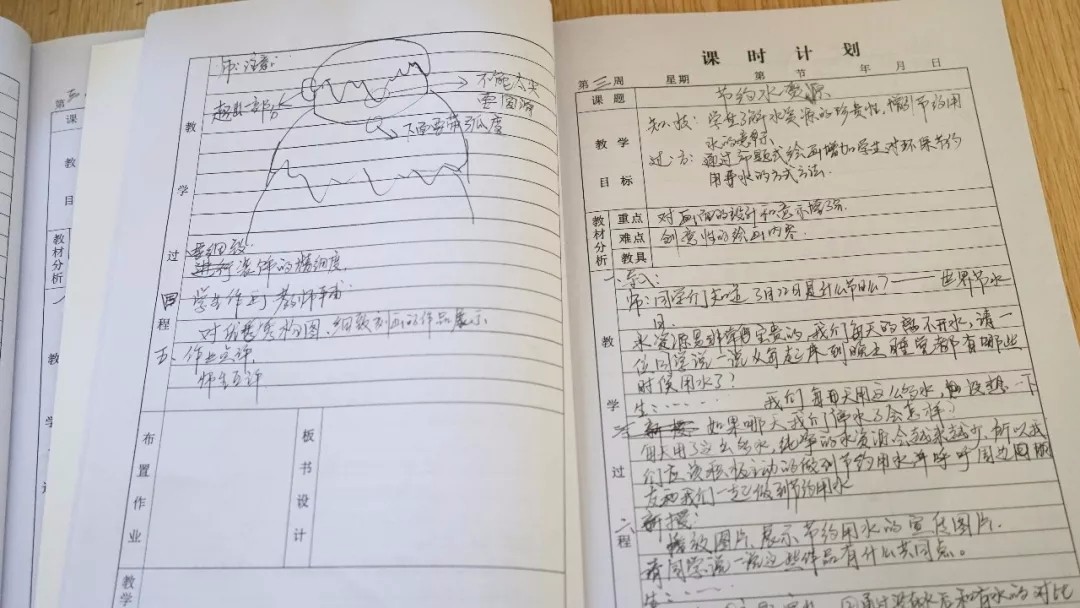 注意:
不能太尖
要圆滑
下面要带弧度
教
学
过
程
要细致
进行整体的描细度.
四 学生作画,教师手画:
对优秀 构图,细致刻画的作品展示.
五、作业点评.
师生互评
布置作业
板书设计
教学
课时计划
第三周 星期 第 节 年 月 日
课题 节约水资源
教学目标
知、技: 学生了解水资源的珍贵性,增强节约用
水的意识.
过、方: 通过命题式绘画增加学生对环保节约
用水的方式方法.
教材分析
重点 对画面的设计和意识增强.
难点 创意性的绘画内容.
教具
教
学
过
程
一 导入:
师:同学们知道3月22日是什么节日么?—— 世界节水
日.
水资源是非常宝贵的,我们每天的离不开水,请一
位同学说一说从每起床到晚上睡觉都有哪些
时候用水了?
生:...... 我们每天用这么多水,想一下
如果哪天我们停水了会怎样?
每天用了这么多水,纯净的水资源会越来越少,所以我
们应该积极主动的做到节约用水并呼吁周边
友和我们一起做到节约用水
二 新授:
播放图片,展示节约用水的宣传图片.
请同学说一说这些作品有什么共同点。
生:......
的对比